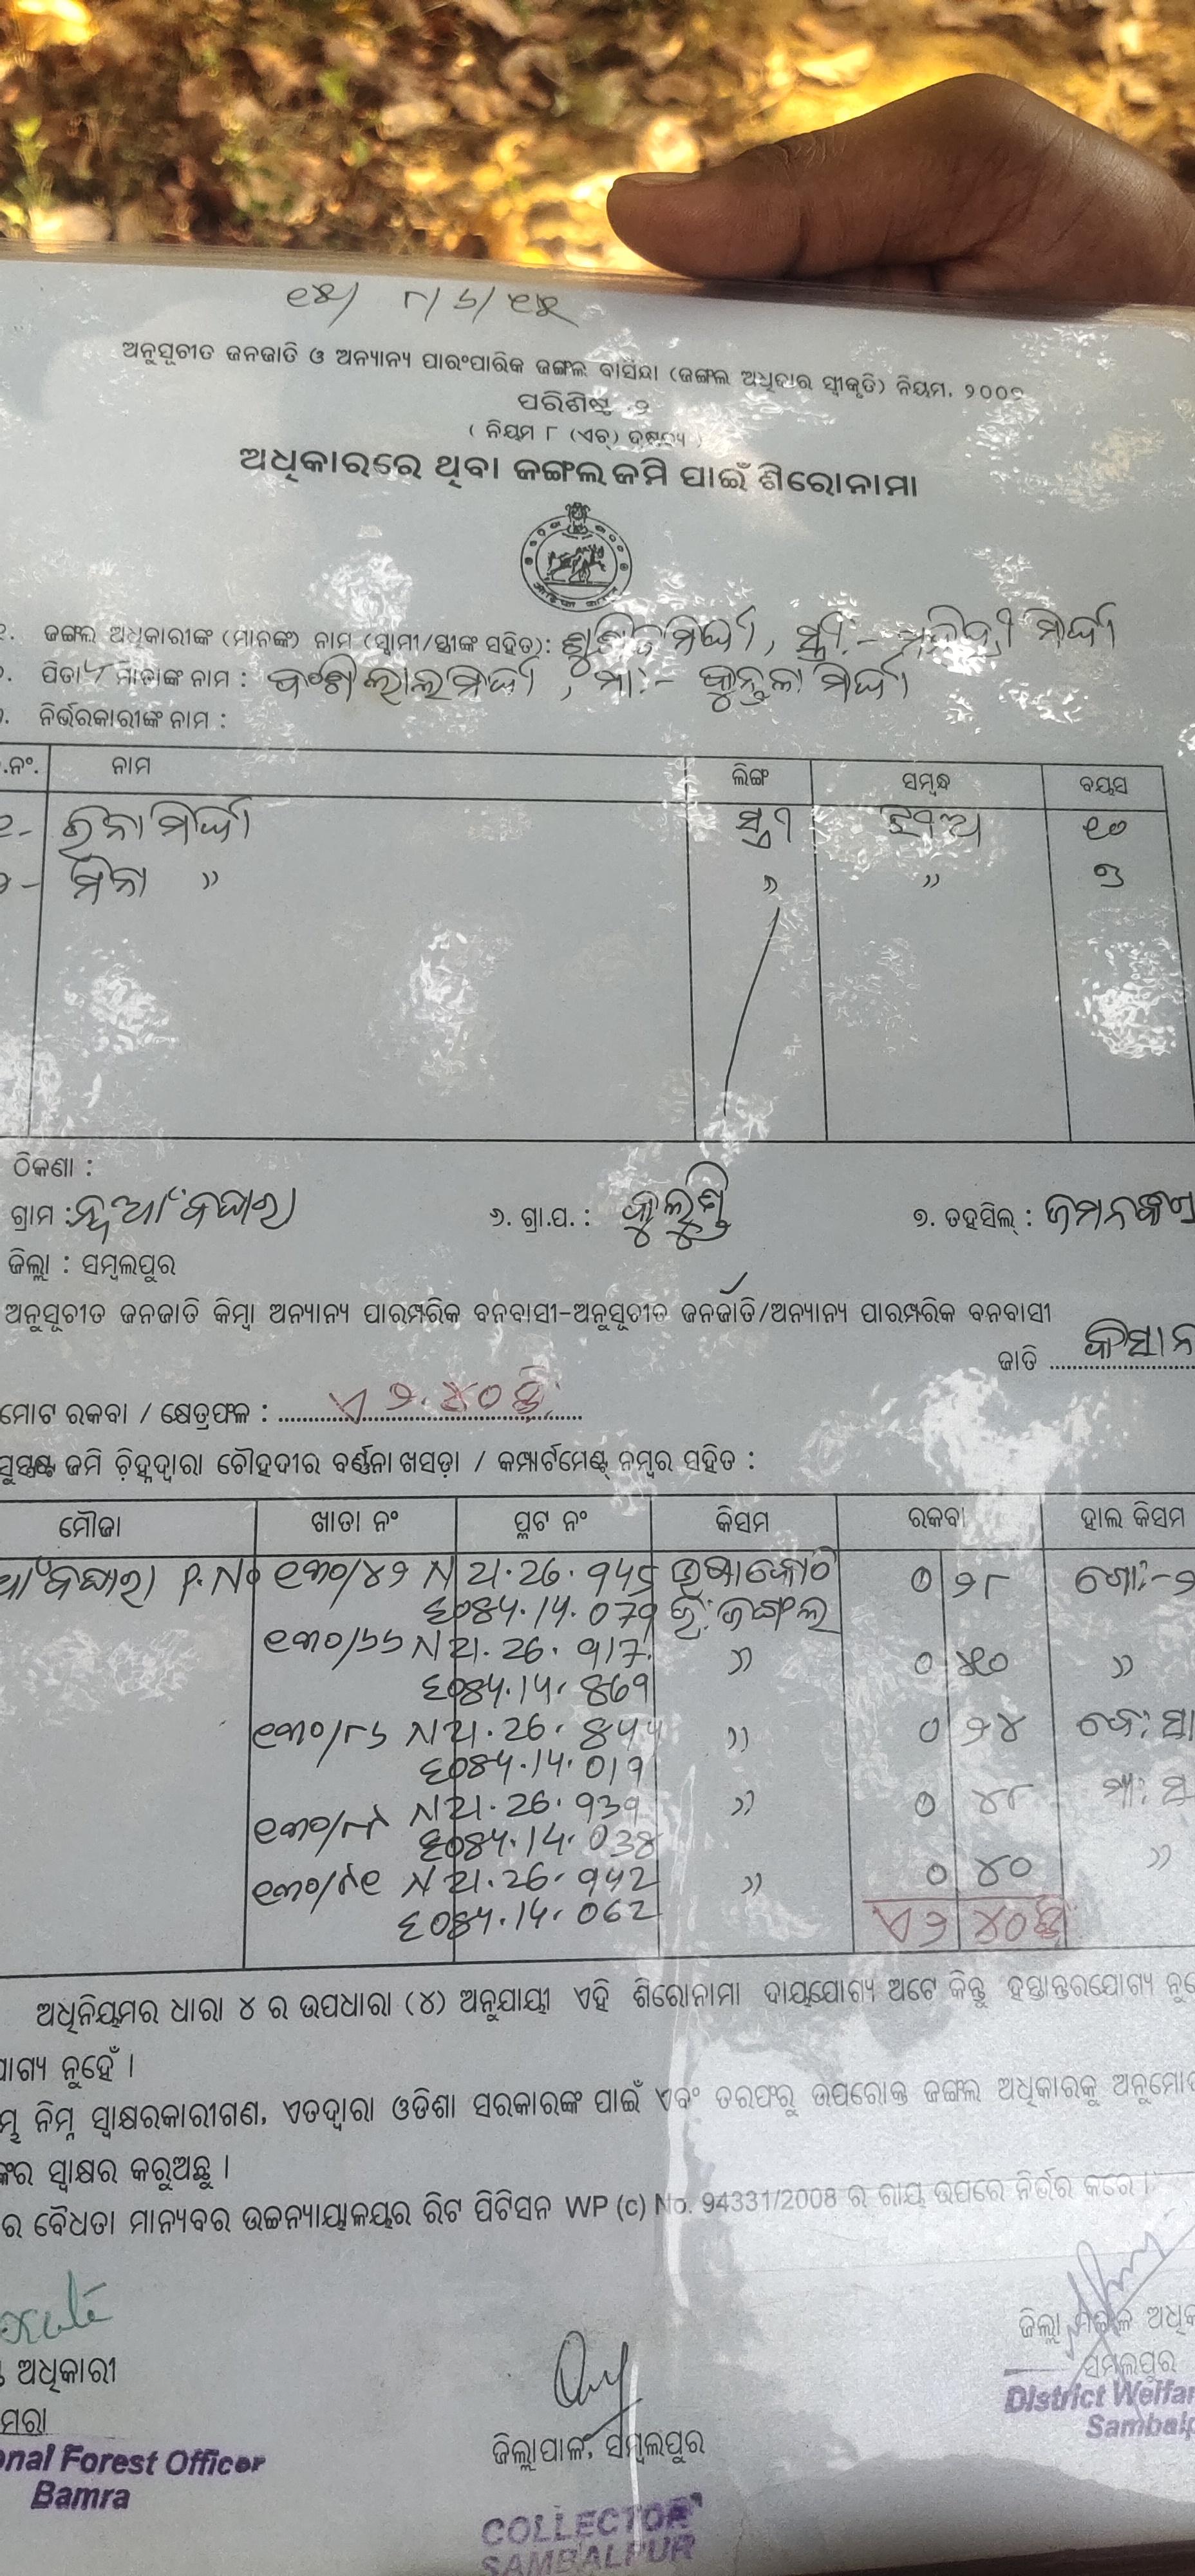 ୧୫/ ୮/୬/୧୫
ଅନୁସୂଚୀତ ଜନଜାତି ଓ ଅନ୍ୟାନ୍ୟ ପାରଂପାରିକ ଜଙ୍ଗଲ ବାସିନ୍ଦା (ଜଙ୍ଗଲ ଅଧିକାର ସ୍ୱୀକୃତି) ନିୟମ, ୨୦୦୭
ପରିଶିଷ୍ଟ -୨
( ନିୟମ ୮ (ଏଚ୍) ଦ୍ରଷ୍ଟବ୍ୟ )
ଅଧିକାରରେ ଥିବା ଜଙ୍ଗଲ ଜମି ପାଇଁ ଶିରୋନାମା
୧. ଜଙ୍ଗଲ ଅଧିକାରୀଙ୍କ (ମାନଙ୍କ) ନାମ (ସ୍ୱାମୀ/ସ୍ତ୍ରୀଙ୍କ ସହିତ): ମିର୍ଦ୍ଧା, ସ୍ତ୍ରୀ:- ମିର୍ଦ୍ଧା
ପିତା / ମାତାଙ୍କ ନାମ : ବଂଶୀଲାଲ ମିର୍ଦ୍ଧା, ମା:- କୁନ୍ତଳା ମିର୍ଦ୍ଧା
ନିର୍ଭରକାରୀଙ୍କ ନାମ :
.ନଂ. ନାମ ଲିଙ୍ଗ ସମ୍ବନ୍ଧ ବୟସ
୧- ରିନା ମିର୍ଦ୍ଧା ସ୍ତ୍ରୀ ଝିଅ ୧୦
୨- ମିନା " " " ୭
ଠିକଣା :
ଗ୍ରାମ : ନୂଆଁବଘାରା ୬. ଗ୍ରା.ପ. : କୁଲୁଣ୍ଡି ୭. ତହସିଲ୍ : ଜମନକିରା
ଜିଲ୍ଲା : ସମ୍ବଲପୁର
ଅନୁସୂଚୀତ ଜନଜାତି କିମ୍ବା ଅନ୍ୟାନ୍ୟ ପାରମ୍ପରିକ ବନବାସୀ-ଅନୁସୂଚୀତ ଜନଜାତି/ଅନ୍ୟାନ୍ୟ ପାରମ୍ପରିକ ବନବାସୀ
ଜାତି କିସାନ
ମୋଟ ରକବା / କ୍ଷେତ୍ରଫଳ : ଏ ୨.୪୦ ଡି
ସୁସ୍ପଷ୍ଟ ଜମି ଚିହ୍ନଦ୍ୱାରା ଚୌହଦୀର ବର୍ଣ୍ଣନା ଖସଡ଼ା / କମ୍ପାର୍ଟମେଣ୍ଟ୍ ନମ୍ବର ସହିତ :
ମୌଜା ଖାତା ନଂ ପ୍ଳଟ ନଂ କିସମ ରକବା ହାଲ କିସମ
ଆଁବଘାରା P.No ୧୩୦/୪୨ N 21.26.945 ଉଷାକୋଠି ୦ ୨୮ ଗୋ:-୨
E084.14.079 ରି: ଜଙ୍ଗଲ
୧୩୦/୬୬ N 21.26.917 " ୦ "
E084.14.869
୧୩୦/୮୬ N 21.26.844 " ୦ ୨୪
E084.14.019
୧୩୦/୮୯ N 21.26.939 " ୦ ୪୮
E084.14.038
୧୩୦/୯୧ N 21.26.942 " ୦ ୪୦ "
E084.14.062 ଏ ୨ ୪୦ ଡି
ଅଧିନିୟମର ଧାରା ୪ ର ଉପଧାରା (୪) ଅନୁଯାୟୀ ଏହି ଶିରୋନାମା ଦାୟଯୋଗ୍ୟ ଅଟେ କିନ୍ତୁ ହସ୍ତାନ୍ତରଯୋଗ୍ୟ ନୁହେ
ଯୋଗ୍ୟ ନୁହେଁ ।
ନିମ୍ନ ସ୍ୱାକ୍ଷରକାରୀଗଣ, ଏତଦ୍ୱାରା ଓଡିଶା ସରକାରଙ୍କ ପାଇଁ ଏବଂ ତରଫରୁ ଉପରୋକ୍ତ ଜଙ୍ଗଲ ଅଧିକାରକୁ ଅନୁମୋଦ
ଙ୍କର ସ୍ୱାକ୍ଷର କରୁଅଛୁ ।
ର ବୈଧତା ମାନ୍ୟବର ଉଚ୍ଚନ୍ୟାୟାଳୟର ରିଟ ପିଟିସନ WP (c) No. 94331/2008 ର ରାୟ ଉପରେ ନିର୍ଭର କରେ ।
ଅଧିକାରୀ
ମରା
onal Forest Officer
Bamra
ଜିଲ୍ଲାପାଳ, ସମ୍ବଲପୁର
COLLECTOR
SAMBALPUR
ଜିଲ୍ଲା ମଙ୍ଗଳ ଅଧିକା
ସମ୍ବଲପୁର
District Welfar
Sambalp